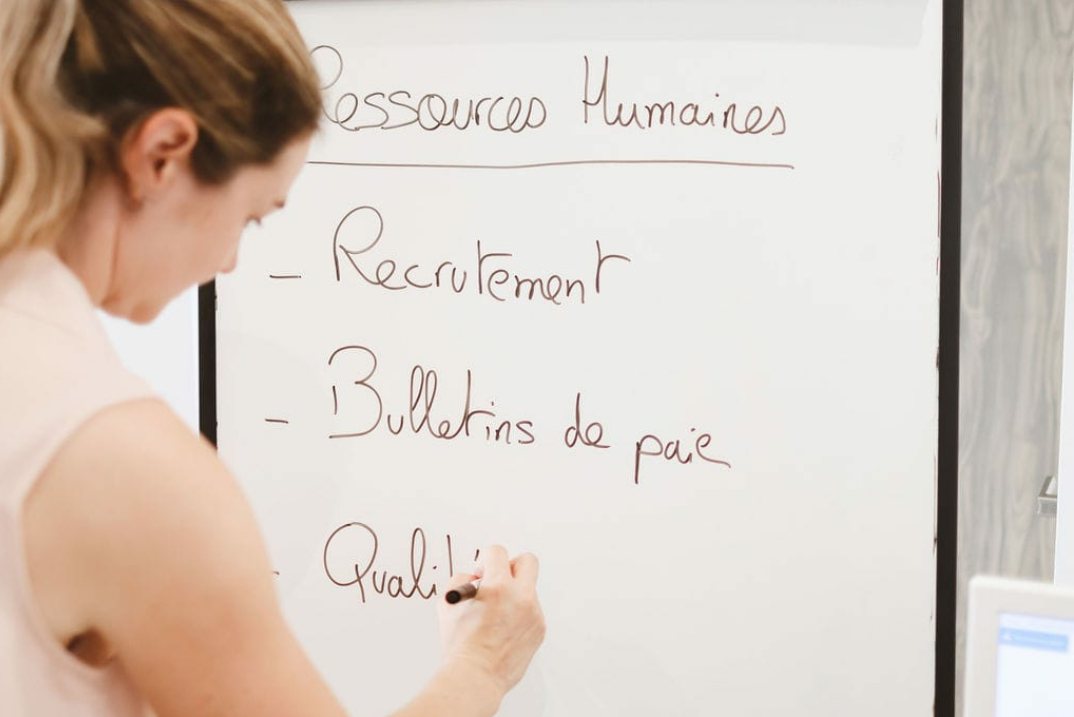 Ressources Humaines
- Recrutement
- Bulletins de paie